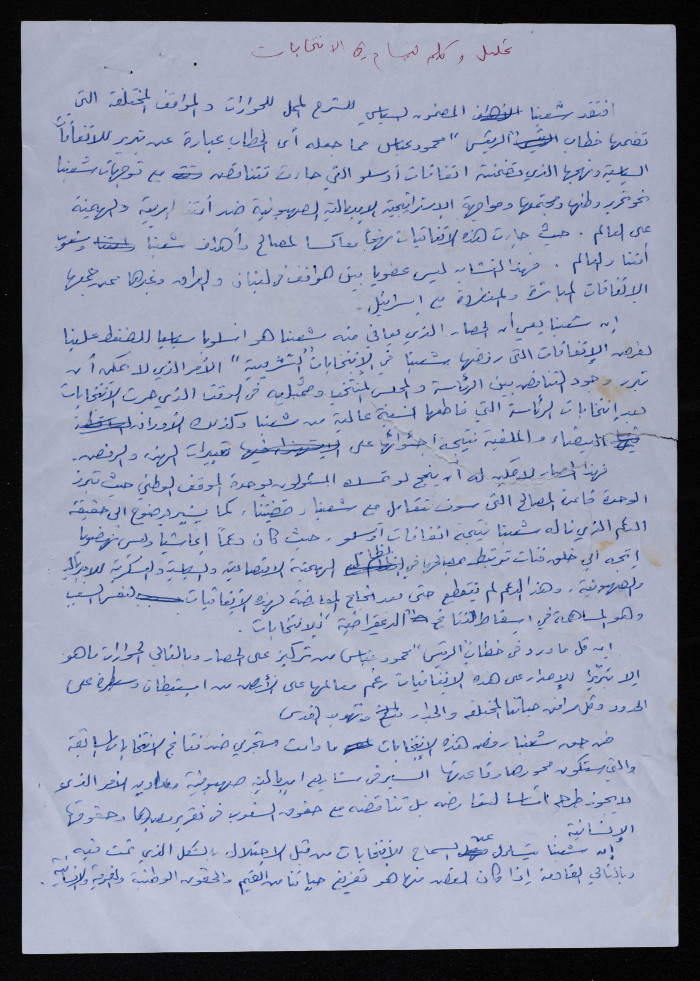 تحليل و كلام لبسام في الانتخابات
افتقد شعبنا المضمون لسياسي للشرح المحل للحوارات والمواقف المختلفة التي
تضمنها خطاب الرئيس "محمود عباس مما جعله أي الخطاب عبارة عن تبرير للاتفاقات
السياسية ونهجها الذي تضمنته اتفاقات أوسلو التي صارت تتناقض مع توجهات شعبنا
نحو تحرير وطنها ومجتمعها ومواجهة الاستراتيجية الامبريالية الصهيونية ضد أمتنا العربية والهيمنة
على العالم . حيث صارت هذه الاتفاقيات نهجاً معاكساً لمصالح وأهداف شعبنا وشعوب
أمتنا والعالم . فهذا التشابه ليس عفويا بين مواقف في لبنان والعراق وغيرها ممن جمعها
الاتفاقات المباشرة والمنفردة مع اسرائيل .
إن شعبنا يعي أن الحصار الذي يعاني منه شعبنا هو اسلوبا سياسيا للضغط علينا
لفرض الاتفاقات التي رفضها شعبنا في الانتخابات "التشريعية" الأمر الذي لا يمكن أن
تبرر وجود التناقض بين الرئاسة والمجلس المنتخب وممثليه في الوقت الذي جرت الانتخابات
بعد انتخابات الرئاسة التي قاطعها نسبة عالية من شعبنا وكذلك الأوراق
البيضاء والملغية نتيجة احتوائها على تعبيرات الهزء والرفض .
فهذا الحصار لا يمكن له أن ينجح لو تمسك المسئولون بوحدة الموقف الوطني حيث تبرز
الوحدة قاعدة المصالح التي سوف نتعامل مع شعبنا وقضيتنا ، كما يشير بوضوح الى حقيقة
الدعم الذي ناله شعبنا نتيجة اتفاقات أوسلو ، حيث كان دعماً إعاشيا وليس نهضويا
اتجه الى خلق فئات ترتبط مصالحها في الهيمنة الاقتصادية والسياسية والعسكرية للامبريالية
والصهيونية ، وهذا الدعم لم ينقطع حتى بعد انجاح المعارضة لهذه الاتفاقيات لنفس السبب
وهو المساهمة في اسقاط النتائج الديمقراطية للانتخابات .
إن كل ما ورد في خطاب الرئيس "محمود عباس" من تركيز على الحصار وبالتالي الحوارات ما هو
إلا تبريرا للإصرار على هذه الاتفاقيات رغم معالمها على الأرض من استيطان وسيطرة على
الحدود وكل مرافق حياتنا المختلفة والجدار وتهويد القدس
من حق شعبنا رفض هذه الانتخابات ما دامت ستجري ضد نتائج الانتخابات السابقة
والتي ستكون محورها وقاعدتها السير في مشاريع امبريالية صهيونية الأمر الذي
لا يجوز طرحه بل تناقضه مع حقوق الشعوب في تقرير مصيرها وحقوقها
الإنسانية .
إن شعبنا يتساءل عن السماح للانتخابات من قبل الاحتلال بالشكل الذي تمت فيه
وبالتالي القادمة إذا كان القصد منها هو تفريغ حياتنا من القيم والحقوق الوطنية والفردية والإنسانية .